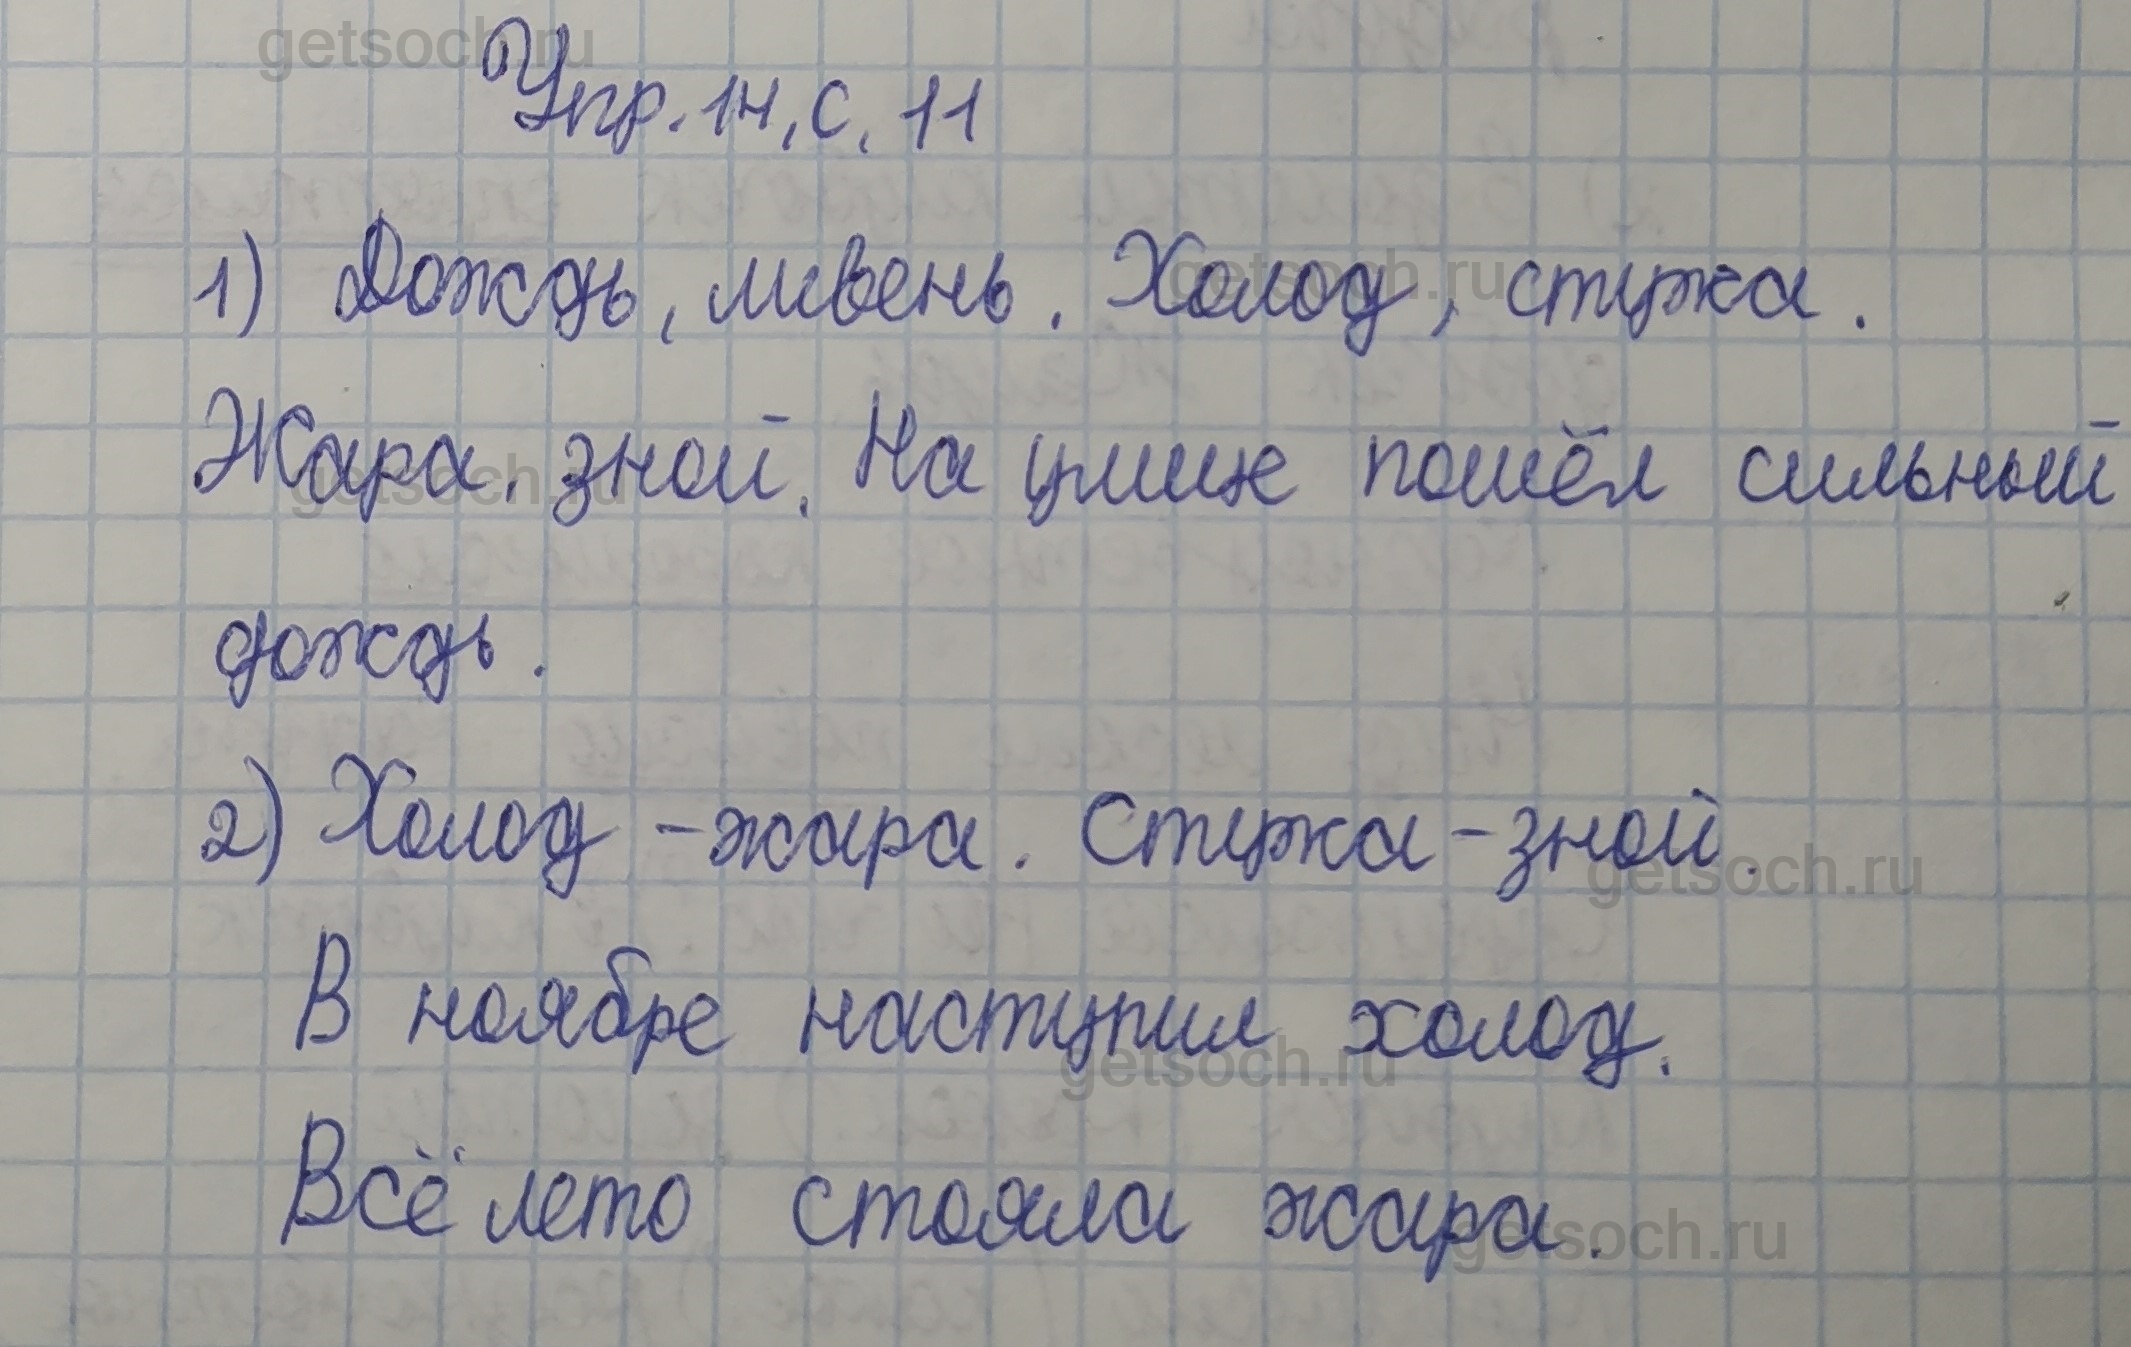 Упр. 14, с. 11
1) Дождь, ливень. Холод, стужа.
Жара, зной. На улице пошёл сильный
дождь.
2) Холод - жара. Стужа - зной.
В ноябре наступил холод.
Всё лето стояла жара.
getsoch.ru
getsoch.ru
getsoch.ru
getsoch.ru
getsoch.ru
getsoch.ru